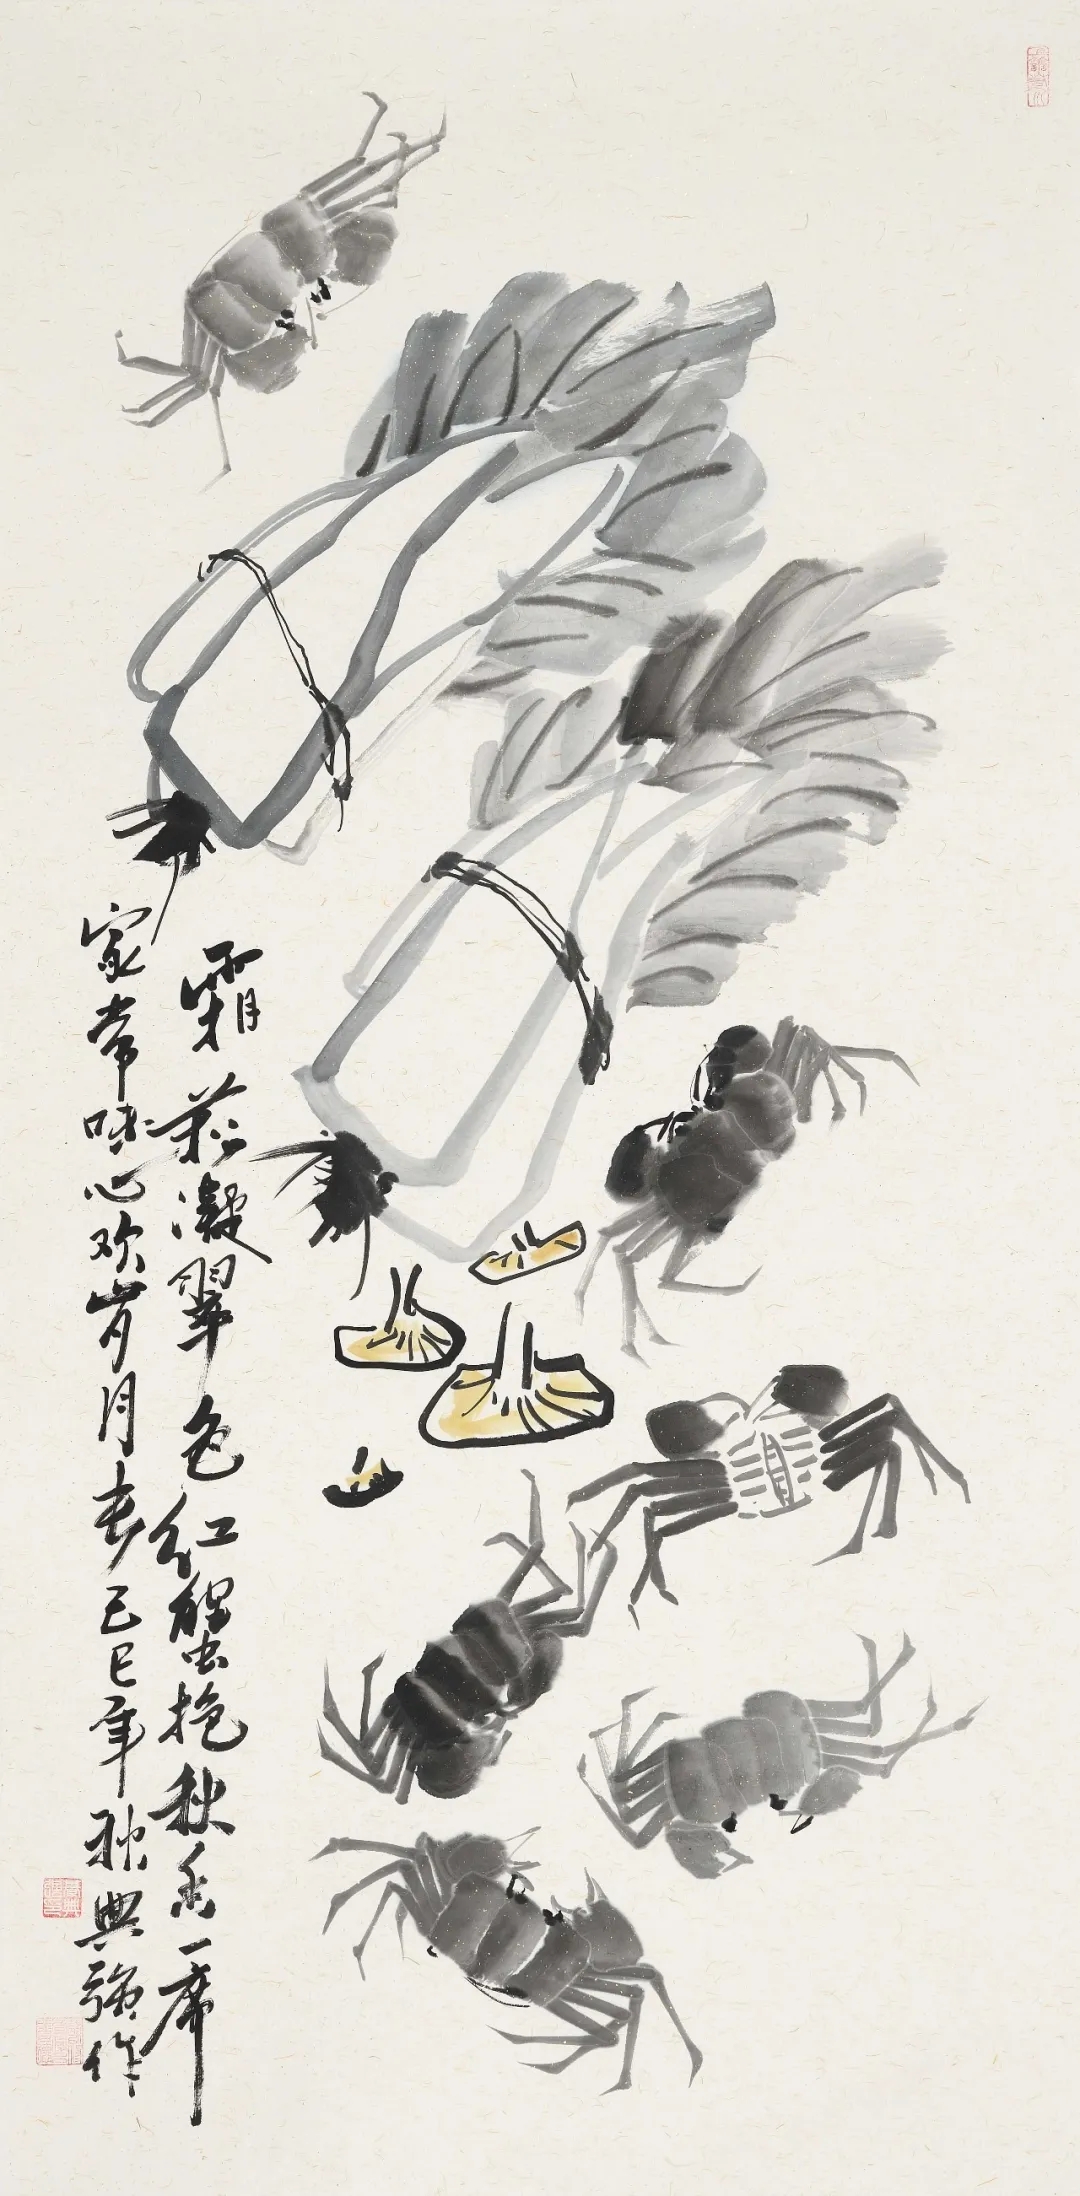 霜菘凝翠色红蟹抱秋香一席
家常味心欢岁月长乙巳年秋典强作